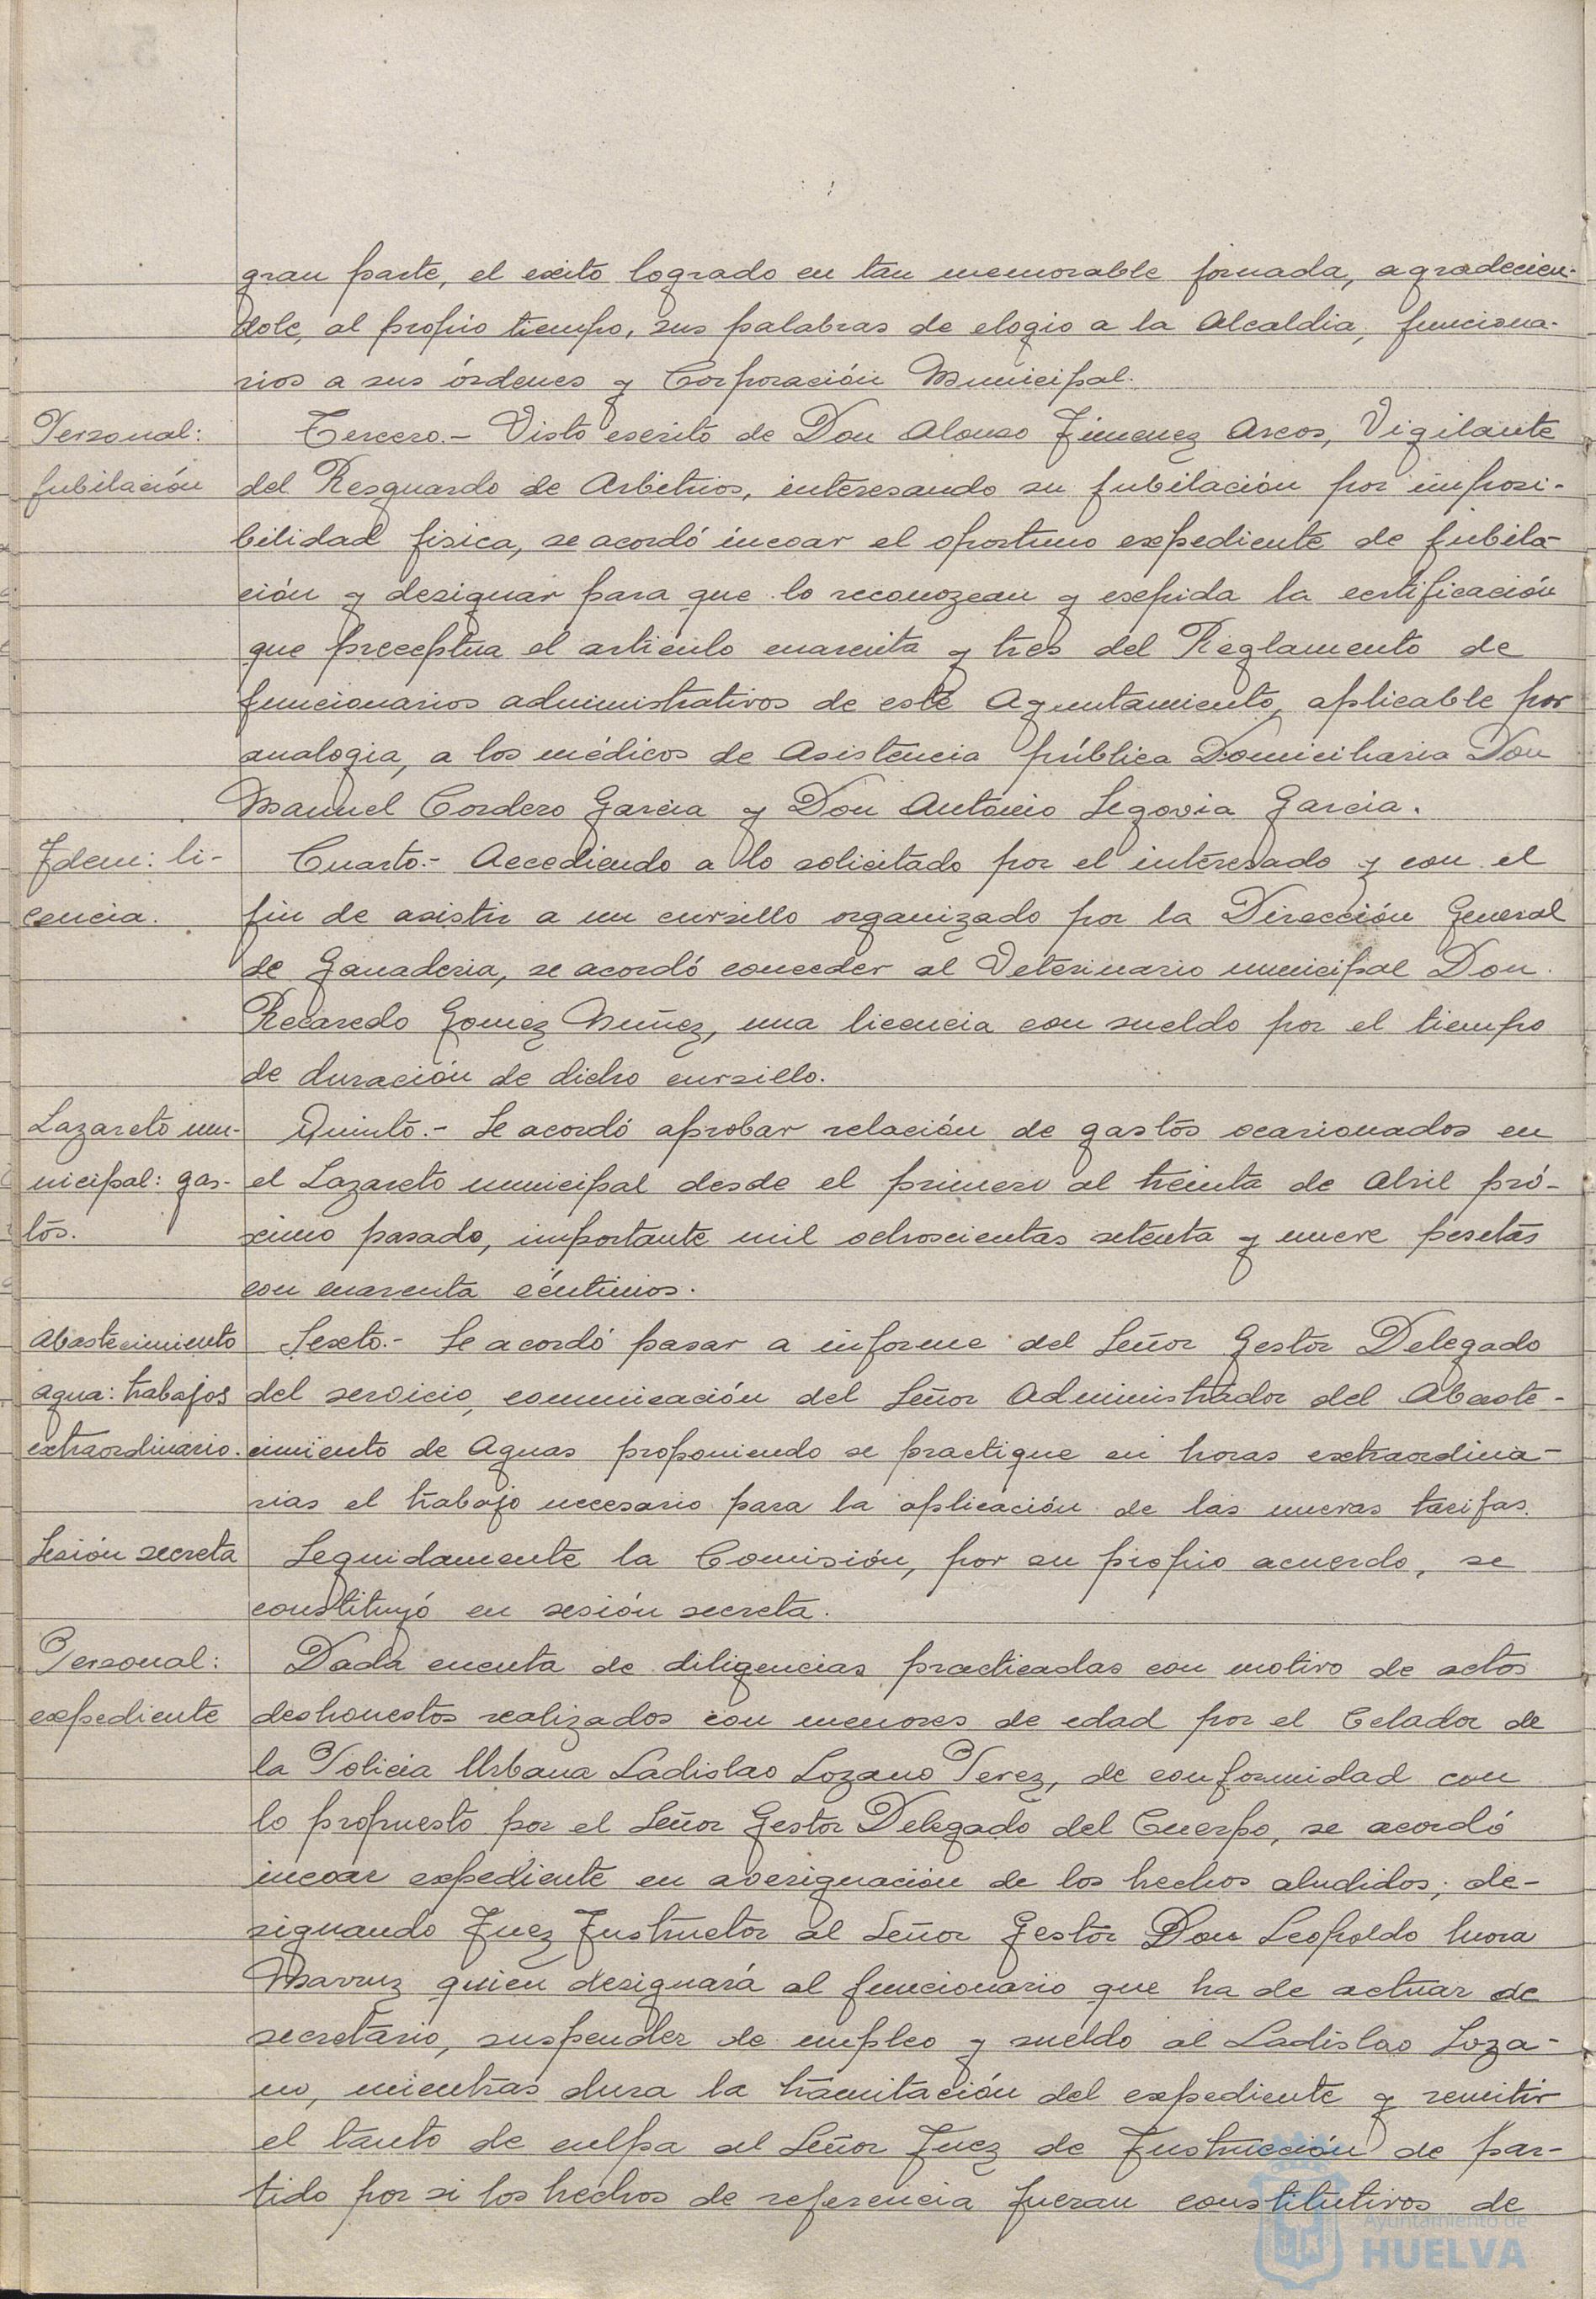 gran parte, el exito logrado en tan memorable jornada, agradecien-
dole, al propio tiempo, sus palabras de elogio a la Alcaldia, funciona-
rios a sus órdenes y Corporación Municipal.
Personal:
jubilación
Tercero.- Visto escrito de Don Alonso Jimenez Arcos, Vigilante
del Resguardo de Arbitrios, interesando su jubilación por imposi-
bilidad fisica, se acordó incoar el oportuno expediente de jubila-
ción y designar para que lo reconozcan y expida la certificación
que preceptua el articulo cuarenta y tres del Reglamento de
funcionarios administrativos de este Ayuntamiento, aplicable por
analogia, a los médicos de Asistencia pública Domiciliaria Don
Manuel Cordero Garcia y Don Antonio Segovia Garcia.
Idem: li-
cencia.
Cuarto.- Accediendo a lo solicitado por el interesado y con el
fin de asistir a un cursillo organizado por la Dirección General
de Ganaderia, se acordó conceder al Veterinario municipal Don
Recaredo Gomez Nuñez, una licencia con sueldo por el tiempo
de duración de dicho cursillo.
Lazareto mu-
nicipal: gas-
tos.
Quinto.- Se acordó aprobar relación de gastos ocasionados en
el Lazareto municipal desde el primero al treinta de Abril pró-
ximo pasado, importante mil ochoscientas setenta y nueve pesetas
con cuarenta céntimos.
Abastecimiento
agua: trabajos
extraordinario.
Sexto.- Se acordó pasar a informe del Señor Gestor Delegado
del servicio, comunicación del Señor Administrador del Abaste-
cimiento de Aguas proponiendo se practique en horas extraordina-
rias el trabajo necesario para la aplicación de las nuevas tarifas.
Sesión secreta
Seguidamente la Comisión, por su propio acuerdo, se
constituyó en sesión secreta.
Personal:
expediente
Dada cuenta de diligencias practicadas con motivo de actos
deshonestos realizados con menores de edad por el Celador de
la Policia Urbana Ladislao Lozano Perez, de conformidad con
lo propuesto por el Señor Gestor Delegado del Cuerpo, se acordó
incoar expediente en averiguación de los hechos aludidos; de-
signando Juez Instructor al Señor Gestor Don Leopoldo Mora
Marruz quien designará al funcionario que ha de actuar de
secretario, suspender de empleo y sueldo al Ladislao Loza-
no, mientras dura la tramitación del expediente y remitir
el tanto de culpa al Señor Juez de Instrucción de par-
tido por si los hechos de referencia fueran constitutivos de
Ayuntamiento de
HUELVA